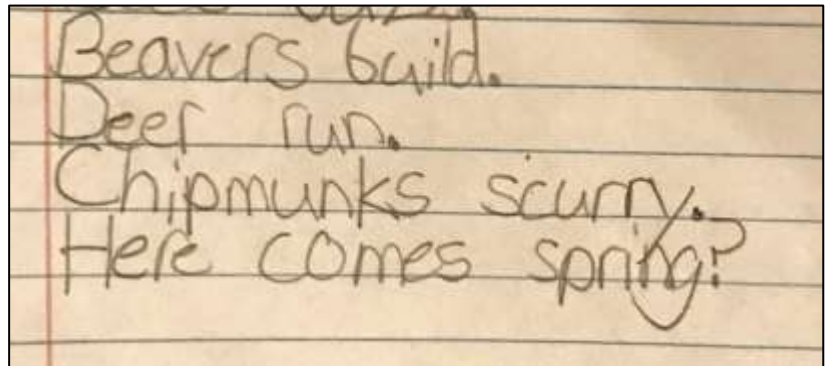 Beavers build.
Deer run.
Chipmunks scurry.
Here comes spring?